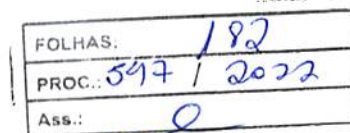 FOLHAS: 182
PROC.: 597 / 2022
Ass.: